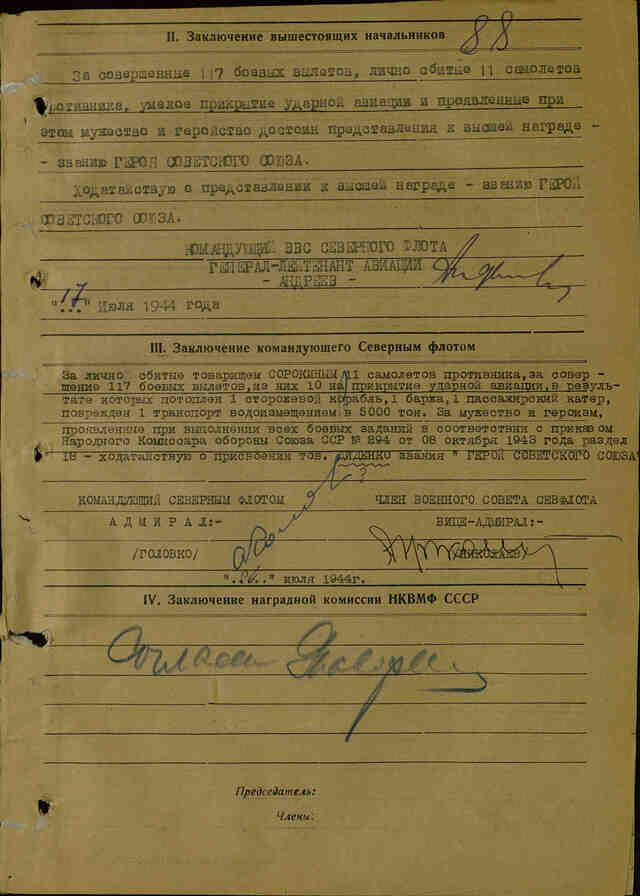 88
II. Заключение вышестоящих начальников
За совершенные 117 боевых вылетов, лично сбитые 11 самолетов
противника, умелое прикрытие ударной авиации и проявленные при
этом мужество и геройство достоин представления к высшей награде -
- званию ГЕРОЯ СОВЕТСКОГО СОЮЗА.
Ходатайствую о представлении к высшей награде - званию ГЕРОЯ
СОВЕТСКОГО СОЮЗА.
КОМАНДУЮЩИЙ ВВС СЕВЕРНОГО ФЛОТА
ГЕНЕРАЛ-ЛЕЙТЕНАНТ АВИАЦИИ
- АНДРЕЕВ -
"17" Июля 1944 года
III. Заключение командующего Северным флотом
За лично сбитые товарищем СОРОКИНЫМ 11 самолетов противника, за совер -
шение 117 боевых вылетов, из них 10 на прикрытие ударной авиации, в резуль-
тате которых потоплен 1 сторожевой корабль, 1 баржа, 1 пассажирский катер,
поврежден 1 транспорт водоизмещением в 5000 тон. За мужество и героизм,
проявленные при выполнении всех боевых заданий в соответствии с приказом
Народного Комиссара обороны Союза ССР № 294 от 08 октября 1943 года раздел
18 - ходатайствую о присвоении тов. ДИДЕНКО звания " ГЕРОЙ СОВЕТСКОГО СОЮЗА"
КОМАНДУЮЩИЙ СЕВЕРНЫМ ФЛОТОМ ЧЛЕН ВОЕННОГО СОВЕТА СЕВФЛОТА
АДМИРАЛ:- ВИЦЕ-АДМИРАЛ:-
/ГОЛОВКО/ /НИКОЛАЕВ/
июля 1944г.
IV. Заключение наградной комиссии НКВМФ СССР
Согласен
Председатель:
Члены: